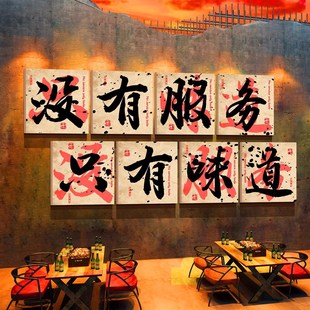 没有服务
只有味道